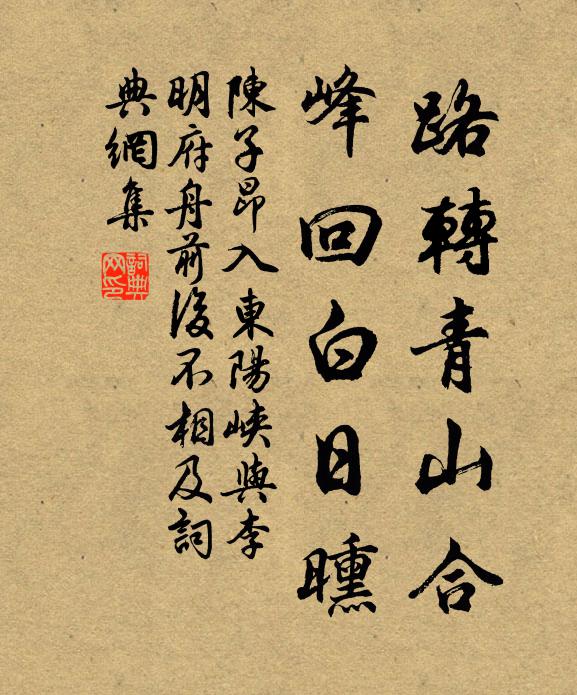 路轉青山合
峰回白日曛
陳子昂入東陽峽與李
明府舟前後不相及詞
典網集
詞典
网印